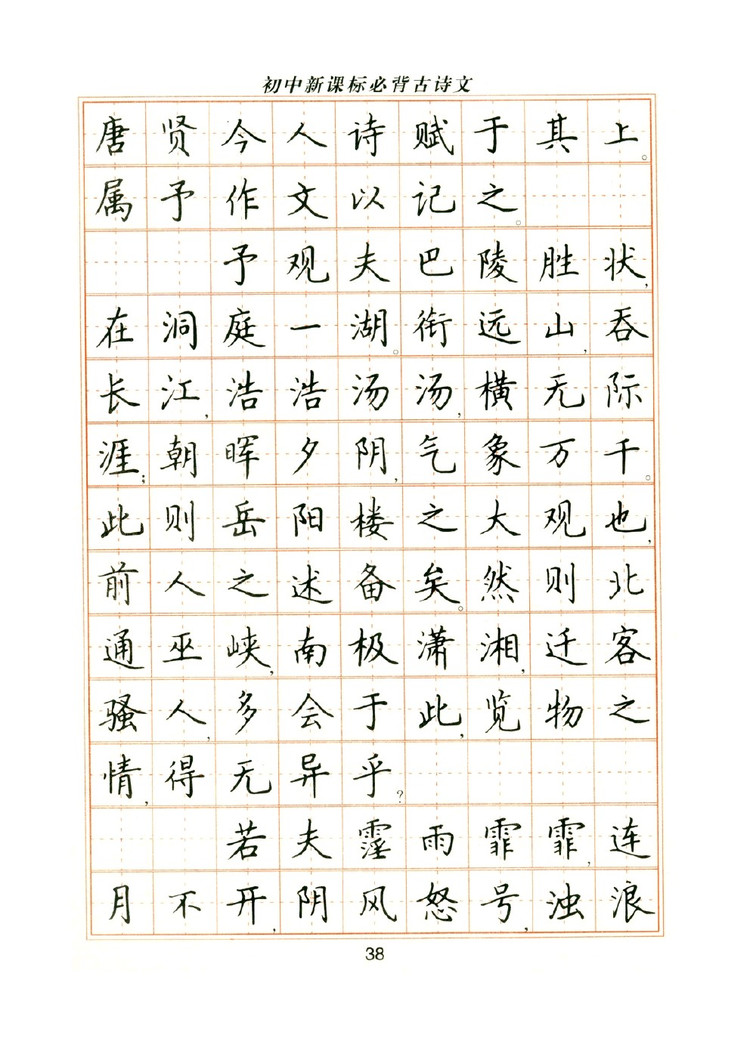 初中新课标必背古诗文
唐贤今人诗赋于其上。
属予作文以记之。
予观夫巴陵胜状,
在洞庭一湖。衔远山,吞
长江,浩浩汤汤,横无际
涯;朝晖夕阴,气象万千。
此则岳阳楼之大观也,
前人之述备矣。然则北
通巫峡,南极潇湘,迁客
骚人,多会于此,览物之
情,得无异乎?
若夫霪雨霏霏,连
月不开,阴风怒号,浊浪
38